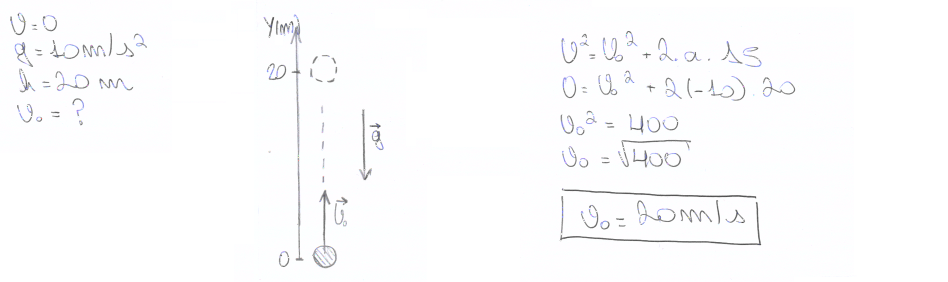 v=0
g=10m/s²
h=20m
v₀=?
y(m)
20
g⃗
v⃗₀
0
v²=v₀²+2.a.ΔS
0=v₀²+2(-10).20
v₀²=400
v₀=√400
v₀=20m/s